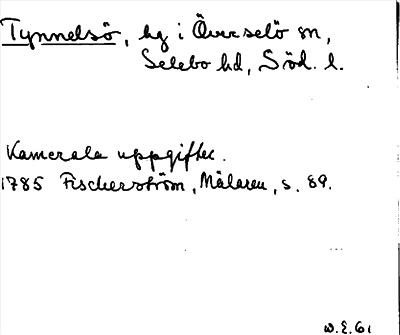 Tynnelsö, hg i Överselö sn,
Selebo hd, Söd. l.
Kamerala uppgifter.
1785 Fischerström, Mälaren, s. 89.
W.E. 61